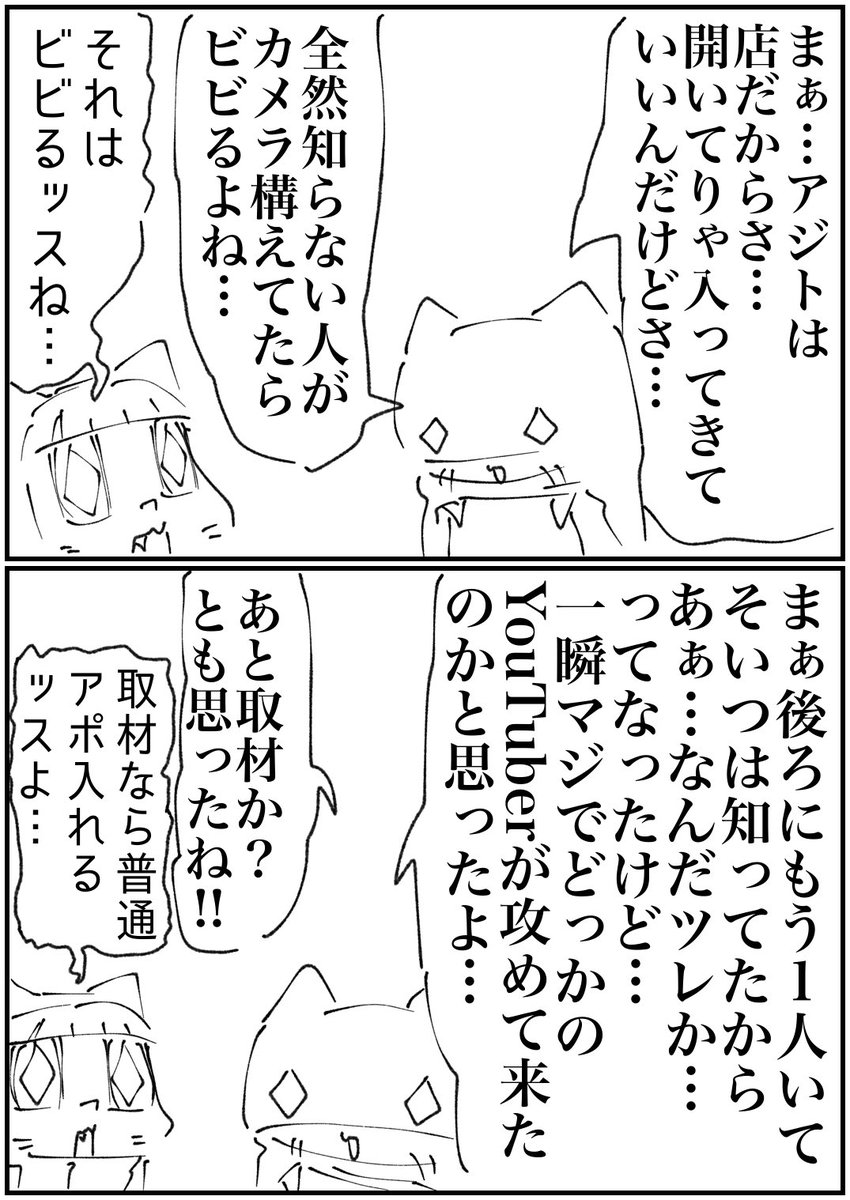 まぁ…アジトは
店だからさ…
開いてりゃ入ってきて
いいんだけどさ…
全然知らない人が
カメラ構えてたら
ビビるよね…
それは
ビビるッスね…
まぁ後ろにもう1人いて
そいつは知ってたから
あぁ…なんだツレか…
ってなったけど…
一瞬マジでどっかの
YouTuberが攻めて来た
のかと思ったよ…
あと取材か?
とも思ったね!!
取材なら普通
アポ入れる
ッスよ…